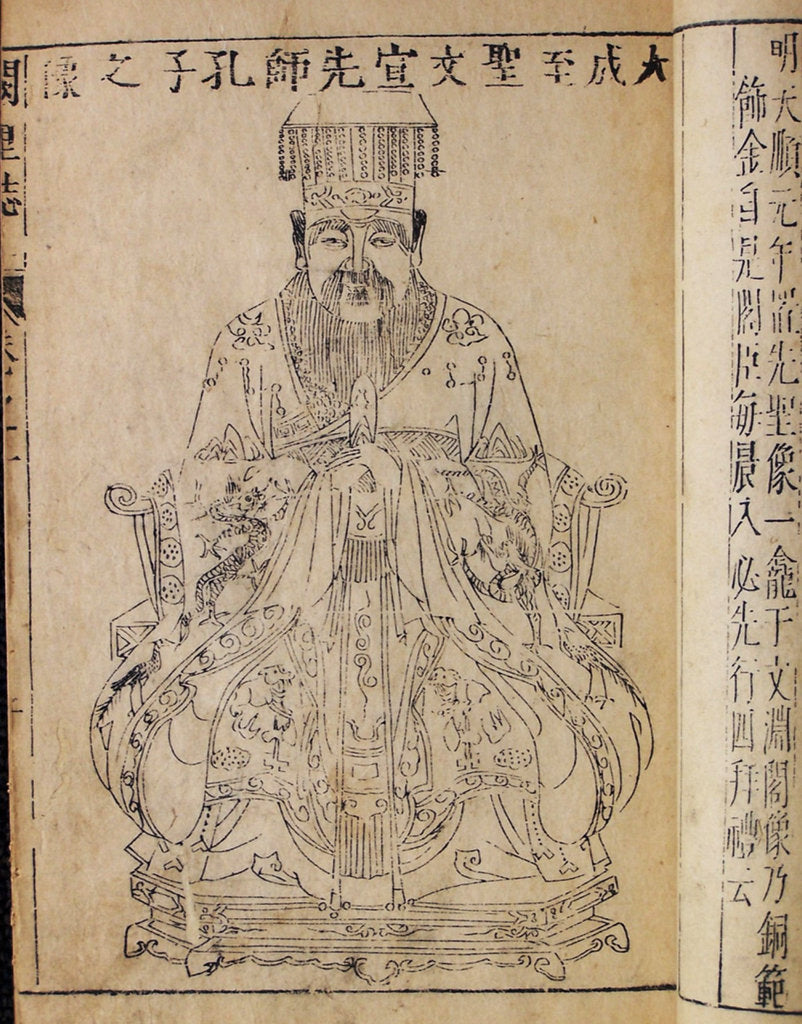 明天順元年置先聖像一龕于文淵閣像乃銅範
飾金自是閣臣每晨入必先行四拜禮云
大成至聖文宣先師孔子之像
闕里誌
卷之一